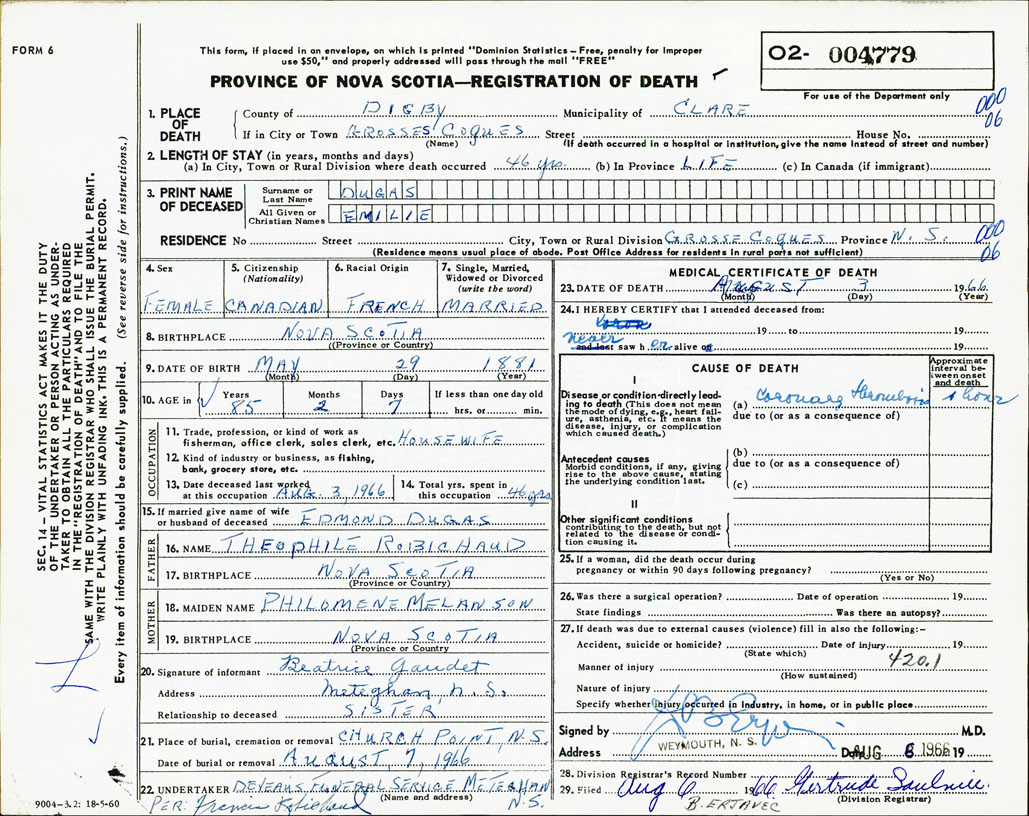 FORM 6
This form, if placed in an envelope, on which is printed "Dominion Statistics – Free, penalty for improper
use $50," and properly addressed will pass through the mail "FREE"
PROVINCE OF NOVA SCOTIA—REGISTRATION OF DEATH
02- 004779
For use of the Department only
1. PLACE OF DEATH
County of DIGBY Municipality of CLARE
000
06
If in City or Town GROSSES COQUES Street House No.
(Name) (If death occurred in a hospital or institution, give the name instead of street and number)
2. LENGTH OF STAY (in years, months and days)
(a) In City, Town or Rural Division where death occurred 46 yrs. (b) In Province LIFE (c) In Canada (if immigrant)
3. PRINT NAME OF DECEASED
Surname or Last Name DUGAS
All Given or Christian Names EMILIE
RESIDENCE No Street City, Town or Rural Division GROSSE COQUES Province N. S.
000
06
(Residence means usual place of abode. Post Office Address for residents in rural parts not sufficient)
4. Sex
FEMALE
5. Citizenship
(Nationality)
CANADIAN
6. Racial Origin
FRENCH
7. Single, Married,
Widowed or Divorced
(write the word)
MARRIED
8. BIRTHPLACE NOVA SCOTIA
(Province or Country)
9. DATE OF BIRTH MAY 29 1881
(Month) (Day) (Year)
10. AGE in Years Months Days If less than one day old
85 2 7 hrs. or min.
OCCUPATION
11. Trade, profession, or kind of work as
fisherman, office clerk, sales clerk, etc. HOUSEWIFE
12. Kind of industry or business, as fishing,
bank, grocery store, etc.
13. Date deceased last worked
at this occupation AUG. 3, 1966
14. Total yrs. spent in
this occupation 46 yrs
15. If married give name of wife
or husband of deceased EDMOND DUGAS
FATHER
16. NAME THEOPHILE ROBICHAUD
17. BIRTHPLACE NOVA SCOTIA
(Province or Country)
MOTHER
18. MAIDEN NAME PHILOMENE MELANSON
19. BIRTHPLACE NOVA SCOTIA
(Province or Country
20. Signature of informant Beatrice Gaudet
Address Meteghan, N.S.
Relationship to deceased SISTER
21. Place of burial, cremation or removal CHURCH POINT, N.S.
Date of burial or removal AUGUST, 7, 1966
22. UNDERTAKER DEVEAU'S FUNERAL SERVICE METEGHAN
(Name and address) N.S.
PER: Francis
9004-3.2: 18-5-60
MEDICAL CERTIFICATE OF DEATH
23. DATE OF DEATH AUGUST 3 1966
(Month) (Day) (Year)
24. I HEREBY CERTIFY that I attended deceased from:
19 to 19
never
and last saw h er alive on 19
CAUSE OF DEATH
Approximate
interval be-
tween onset
and death
I
Disease or condition directly lead-
ing to death (This does not mean
the mode of dying, e.g., heart fail-
ure, asthenia, etc. It means the
disease, injury, or complication
which caused death.)
(a) Coronary Thrombosis 1 hour
due to (or as a consequence of)
Antecedent causes
Morbid conditions, if any, giving
rise to the above cause, stating
the underlying condition last.
(b)
due to (or as a consequence of)
(c)
II
Other significant conditions
contributing to the death, but not
related to the disease or condi-
tion causing it.
25. If a woman, did the death occur during
pregnancy or within 90 days following pregnancy?
(Yes or No)
26. Was there a surgical operation? Date of operation 19
State findings Was there an autopsy?
27. If death was due to external causes (violence) fill in also the following:–
Accident, suicide or homicide? Date of injury 19
(State which) 420.1
Manner of injury
(How sustained)
Nature of injury
Specify whether injury occurred in industry, in home, or in public place
Signed by M.D.
Address WEYMOUTH, N. S. Date AUG 6 1966 19
28. Division Registrar's Record Number
29. Filed Aug 6 1966 Gertrude Saulnier
(Division Registrar)
B. ERJAVEC
SEC. 14 – VITAL STATISTICS ACT MAKES IT THE DUTY
OF THE UNDERTAKER OR PERSON ACTING AS UNDER-
TAKER TO OBTAIN ALL THE PARTICULARS REQUIRED
IN THE "REGISTRATION OF DEATH" AND TO FILE THE
SAME WITH THE DIVISION REGISTRAR WHO SHALL ISSUE THE BURIAL PERMIT.
WRITE PLAINLY WITH UNFADING INK. THIS IS A PERMANENT RECORD.
Every item of information should be carefully supplied. (See reverse side for instructions.)